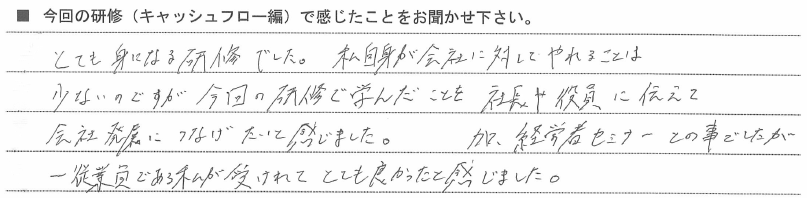 ■ 今回の研修（キャッシュフロー編）で感じたことをお聞かせ下さい。
とても身になる研修でした。私自身が会社に対してやれることは
少ないのですが今回の研修で学んだことを社長や役員に伝えて
会社発展につなげたいと感じました。 経営者セミナーとの事でしたが
一従業員である私が受けれてとても良かったと感じました。